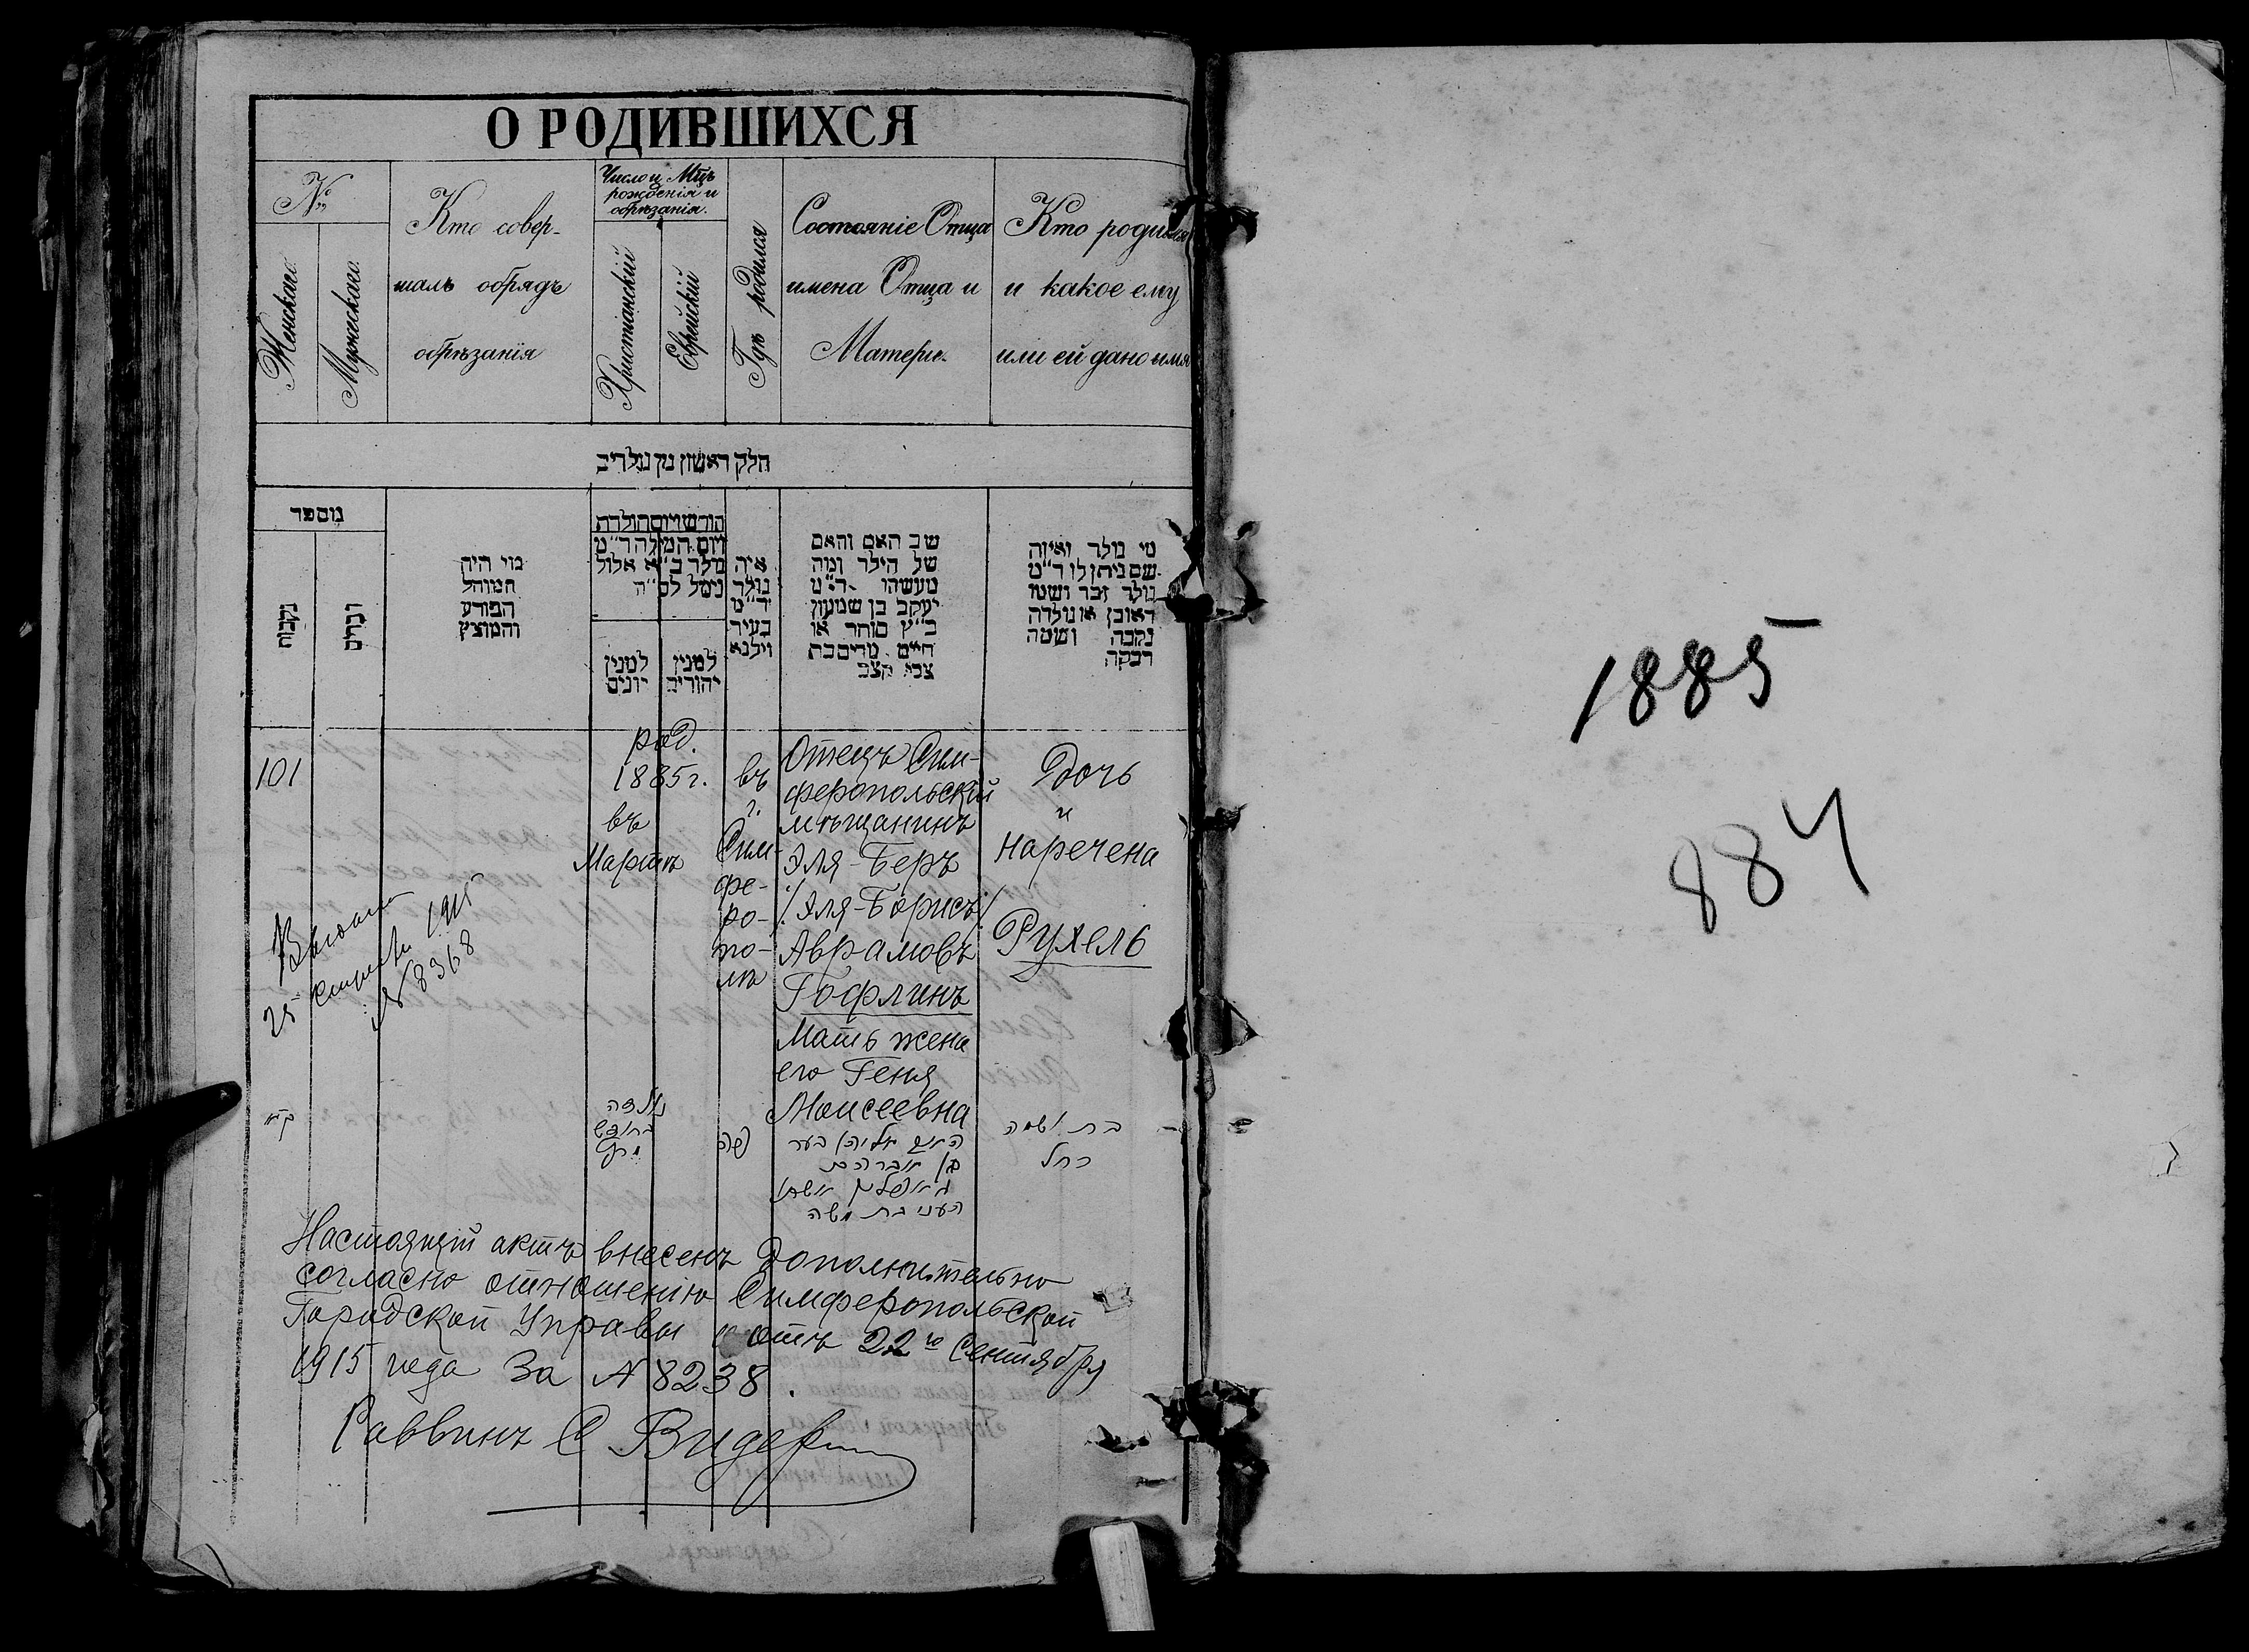 О РОДИВШИХСЯ
№
Женскаго.
Мужескаго.
Кто совер-
шалъ обрядъ
обрѣзанія
Число и Мцъ
рожденія и
обрѣзанія.
Христіанскій
Еврейскій
Гдѣ родился
Состояніе Отца
имена Отца и
Матери.
Кто родился
и какое ему
или ей дано имя
חלק ראשון מן נולדים
מספר
נקבות
זכרים
מי היה
המוהל
הפורע
והמוצץ
חודש ויום הולדת
ויום המילה ר״מ
נולד ב״א אלול
נימל לס״ה
למנין
יונים
למנין
יהודים
איה
נולד
יר״מ
בעיר
וילנא
שם האם והאם
של הילד ומה
מעשהו ר״מ
יעקב בן שמעון
כ״ץ סוחר או
חיים מרים בת
צבי קצב
מי נולד ואיזה
שם ניתן לו ר״מ
נולד זכר ושמו
ראובן או נולדה
נקבה ושמה
רבקה
101
род.
1885 г.
въ
Мартѣ
въ
г.
Сим-
фе-
ро-
по-
лѣ
Отецъ Сим-
феропольскій
мѣщанинъ
Эля-Беръ
/Эля-Борисъ/
Аврамовъ
Гофлинъ
Мать жена
его Геня
Моисеевна
Дочь
и
наречена
Рухель
25 1915
№ 8368
נולדה
בחודש
מרץ
פה
בער
בן אברהם
בת משה
בת ושמה
רחל
Настоящій актъ внесенъ дополнительно
согласно отношенію Симферопольской
Городской Управы отъ 22го Сентября
1915 года за № 8238.
Раввинъ С Видер
1885
884